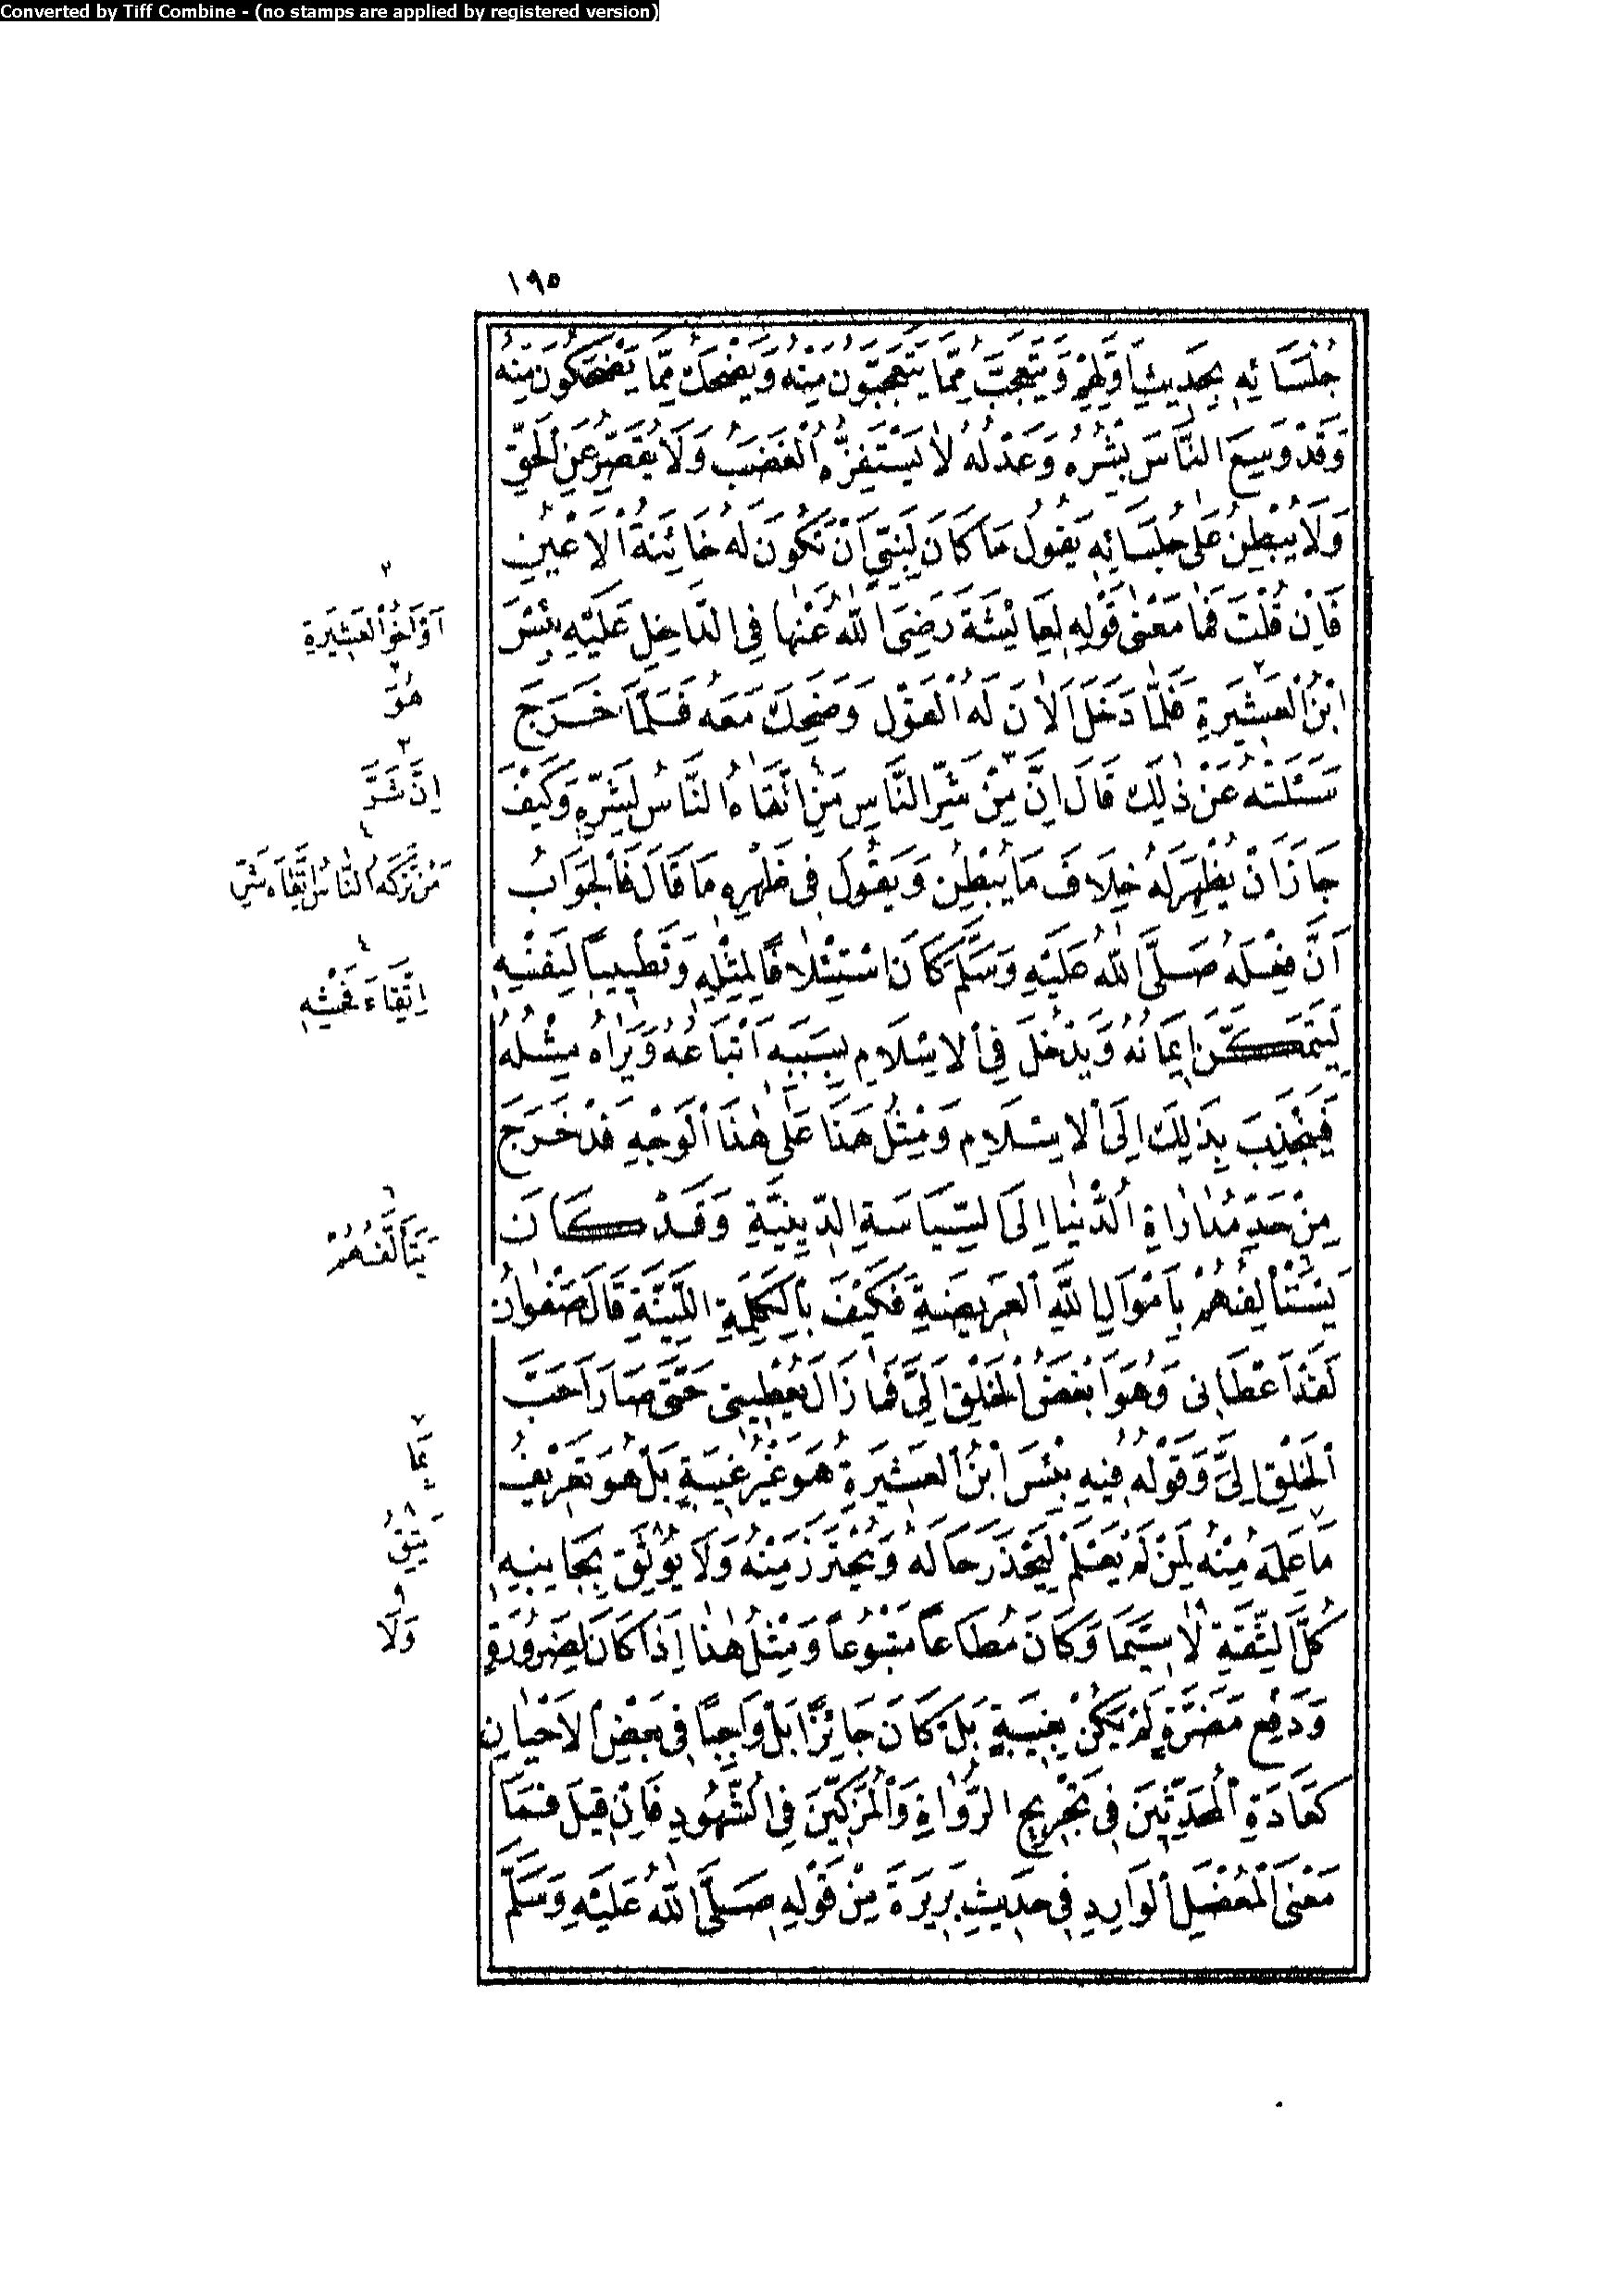 Converted by Tiff Combine - (no stamps are applied by registered version)
١٩٥
جُلَسَائِهِ بِحَدِيثِ اَوَّلِهِمْ وَيَتَعَجَّبُ مِمَّا يَتَعَجَّبُونَ مِنْهُ وَيَضْحَكُ مِمَّا يَضْحَكُونَ مِنْهُ
وَقَدْ وَسِعَ النَّاسَ بِشْرُهُ وَعَدْلُهُ لَا يَسْتَفِزُّهُ الْغَضَبُ وَلَا يُقَصِّرُ عَنِ الْحَقِّ
وَلَا يُبْطِنُ عَلَى جُلَسَائِهِ يَقُولُ مَا كَانَ لِنَبِيٍّ اَنْ تَكُونَ لَهُ خَائِنَةُ الْاَعْيُنِ
فَاِنْ قُلْتَ فَمَا مَعْنَى قَوْلِهِ لِعَائِشَةَ رَضِيَ اللّٰهُ عَنْهَا فِي الدَّاخِلِ عَلَيْهِ بِئْسَ
ابْنُ الْعَشِيرَةِ فَلَمَّا دَخَلَ اَلَانَ لَهُ الْقَوْلَ وَضَحِكَ مَعَهُ فَلَمَّا خَرَجَ
سَئَلَتْهُ عَنْ ذٰلِكَ قَالَ اِنَّ مِنْ شَرِّ النَّاسِ مَنِ اتَّقَاهُ النَّاسُ لِشَرِّهِ وَكَيْفَ
جَازَ اَنْ يُظْهِرَ لَهُ خِلَافَ مَا يُبْطِنُ وَيَقُولَ فِي ظَهْرِهِ مَا قَالَ فَالْجَوَابُ
اَنَّ فِعْلَهُ صَلَّى اللّٰهُ عَلَيْهِ وَسَلَّمَ كَانَ اسْتِئْلَافًا لِمِثْلِهِ وَتَطْيِيبًا لِنَفْسِهِ
لِيَتَمَكَّنَ اِيمَانُهُ وَيَدْخُلَ فِي الْاِسْلَامِ بِسَبَبِهِ اَتْبَاعُهُ وَيَرَاهُ مِثْلُهُ
فَيَنْجَذِبَ بِذٰلِكَ اِلَى الْاِسْلَامِ وَمِثْلُ هٰذَا عَلَى هٰذَا الْوَجْهِ قَدْ خَرَجَ
مِنْ حَدِّ مُدَارَاةِ الدُّنْيَا اِلَى السِّيَاسَةِ الدِّينِيَّةِ وَقَدْ كَانَ
يَسْتَأْلِفُهُمْ بِاَمْوَالِ اللّٰهِ الْعَرِيضَةِ فَكَيْفَ بِالْكَلِمَةِ اللَّيِّنَةِ قَالَ صَفْوَانُ
لَقَدْ اَعْطَانِي وَهُوَ اَبْغَضُ الْخَلْقِ اِلَيَّ فَمَا زَالَ يُعْطِينِي حَتَّى صَارَ اَحَبَّ
الْخَلْقِ اِلَيَّ وَقَوْلُهُ فِيهِ بِئْسَ ابْنُ الْعَشِيرَةِ هُوَ غَيْرُ غِيبَةٍ بَلْ هُوَ تَعْرِيفُ
مَا عَلِمَهُ مِنْهُ لِمَنْ لَمْ يَعْلَمْ لِيَحْذَرَ حَالَهُ وَيَحْتَرِزَ مِنْهُ وَلَا يُوثَقَ بِجَانِبِهِ
كُلَّ الثِّقَةِ لَا سِيَّمَا وَكَانَ مُطَاعًا مَتْبُوعًا وَمِثْلُ هٰذَا اِذَا كَانَ لِضَرُورَةٍ
وَدَفْعِ مَضَرَّةٍ لَمْ يَكُنْ بِغِيبَةٍ بَلْ كَانَ جَائِزًا بَلْ وَاجِبًا فِي بَعْضِ الْاَحْيَانِ
كَعَادَةِ الْمُحَدِّثِينَ فِي تَجْرِيحِ الرُّوَاةِ وَالْمُزَكِّينَ فِي الشُّهُودِ فَاِنْ قِيلَ فَمَا
مَعْنَى الْمُعْضِلِ الْوَارِدِ فِي حَدِيثِ بَرِيرَةَ مِنْ قَوْلِهِ صَلَّى اللّٰهُ عَلَيْهِ وَسَلَّمَ
٢
اَوْ اَخُو الْعَشِيرَةِ
٢
هُوَ
٣
اِنَّ شَرَّ
٤
مَنْ تَرَكَهُ النَّاسُ اتِّقَاءَ
٤
اِتِّقَاءَ فُحْشِهِ
٦
يَتَأَلَّفُهُمْ
٧
بِمَا
٨
يَثِقُ
٩
وَلَا